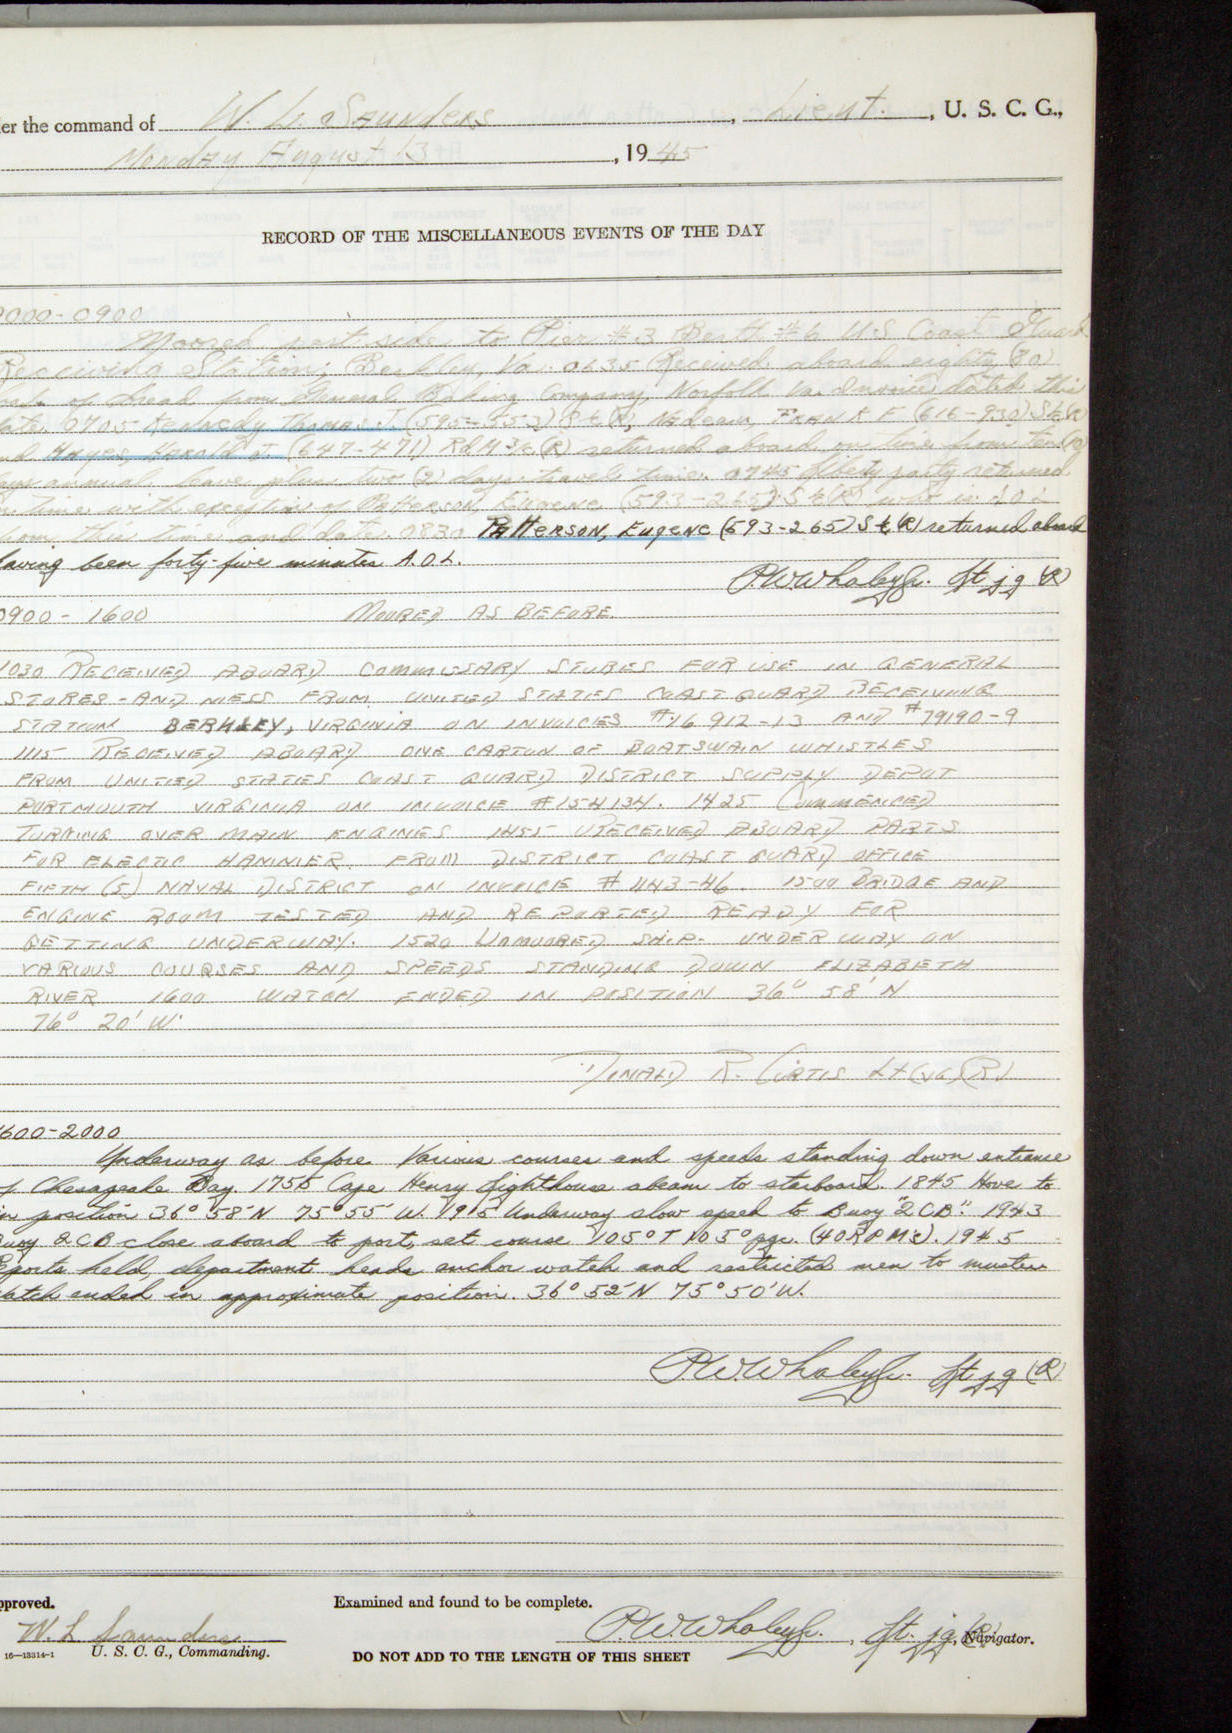 er the command of W. L. Saunders, Lieut., U. S. C. G.,
Monday August 13, 1945
RECORD OF THE MISCELLANEOUS EVENTS OF THE DAY
0000-0900
Moored port side to Pier #3 Berth #6 U.S. Coast Guard
Receiving Station, Berkley, Va. 0635 Received aboard eighty (80)
of bread from General Baking Company, Norfolk Va. Invoice dated this
ate. 0705 Kennedy, Thomas J. (595-553) S1c(R), Nedeau, Frank F (616-930) S1c(R)
nd Hayes, Harold J. (647-471) RdM3c(R) returned aboard on time from ten (10)
ays annual leave plus two (2) days travel time. 0745 liberty party returned
on time with exception of Patterson, Eugene (593-265) S1c(R) who is A.O.L.
from this time and date. 0830 Patterson, Eugene (593-265) S1c(R) returned aboard
having been forty-five minutes A.O.L.
P.W. Whaley Jr. Lt jg (R)
0900 - 1600 MOORED AS BEFORE.
1030 RECEIVED ABOARD COMMISSARY STORES FOR USE IN GENERAL
STORES - AND MESS FROM UNITED STATES COAST GUARD RECEIVING
STATION BERKLEY, VIRGINIA ON INVOICES #16912-13 AND #79190-9
1115 RECEIVED ABOARD ONE CARTON OF BOATSWAIN WHISTLES
FROM UNITED STATES COAST GUARD DISTRICT SUPPLY DEPOT
PORTMOUTH VIRGINIA ON INVOICE #154134. 1425 COMMENCED
TURNING OVER MAIN ENGINES 1455 RECEIVED ABOARD PARTS
FOR ELECTIC HAMMER FROM DISTRICT COAST GUARD OFFICE
FIFTH (5) NAVAL DISTRICT ON INVOICE # 1143-46. 1500 BRIDGE AND
ENGINE ROOM TESTED AND REPORTED READY FOR
GETTING UNDERWAY. 1520 UNMOORED SHIP. UNDERWAY ON
VARIOUS COURSES AND SPEEDS STANDING DOWN ELIZABETH
RIVER 1600 WATCH ENDED IN POSITION 36° 58' N
76° 20' W.
DONALD R. CURTIS Lt(JG)(R)
1600-2000
Underway as before. Various courses and speeds standing down entrance
of Chesapeake Bay. 1755 Cape Henry Lighthouse abeam to starboard. 1845 Hove to
in position 36° 58' N 75° 55' W. 1915 Underway slow speed to Buoy "2CB". 1943
Buoy 2CB close aboard to port, set course 105° T 105° pgc. (40 RPMs). 1945
Eports held, department heads anchor watch and restricted men to muster.
Watch ended in approximate position. 36° 52' N 75° 50' W.
P.W. Whaley Jr. Lt jg (R)
pproved.
W. L. Saunders
16—13314-1 U. S. C. G., Commanding.
Examined and found to be complete.
P.W. Whaley Jr., Lt. jg, (R) Navigator.
DO NOT ADD TO THE LENGTH OF THIS SHEET